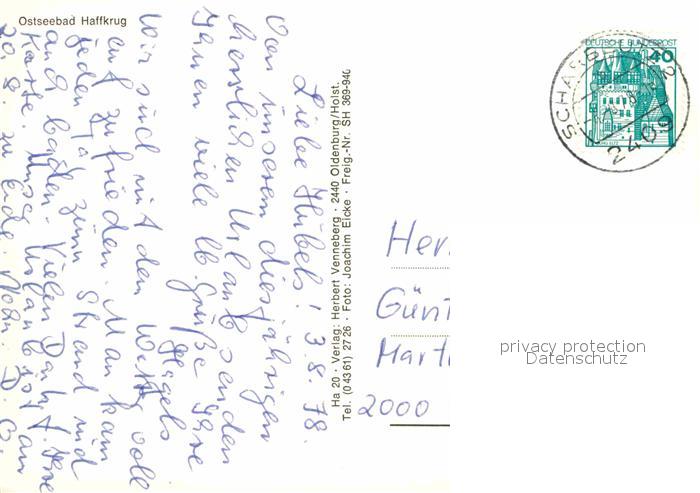 Ostseebad Haffkrug
Liebe Hübels! 3.8.78.
Von unserem diesjährigen
Urlaub senden
Ihnen viele lb. Grüße Ihre
Wir sind mit dem Wetter voll
und zufrieden. Man kann
jeden Tag zum Strand und
auch baden. Vielen Dank f. Ihre
Karte. Unser Urlaub ist am
20.8. zu Ende.
Ha 20 · Verlag: Herbert Venneberg · 2440 Oldenburg/Holst.
Tel. (0 43 61) 27 26 · Foto: Joachim Eicke · Freig.-Nr. SH 369-940
DEUTSCHE BUNDESPOST
40
2409
Her
Günt
Mart
2000
privacy protection
Datenschutz